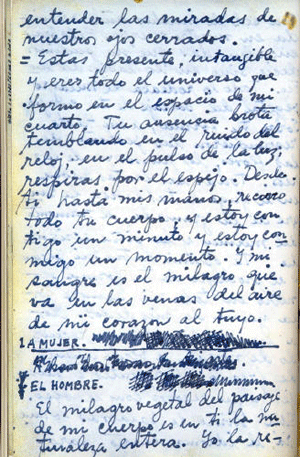 entender las miradas de
nuestros ojos cerrados.
= Estas presente, intangible
y eres todo el universo que
formo en el espacio de mi
cuarto. Tu ausencia brota
temblando en el ruido del
reloj, en el pulso de la luz;
respiras por el espejo. Desde
ti hasta mis manos, recorro
todo tu cuerpo, y estoy con
tigo un minuto y estoy con
migo un momento. Y mi
sangre es el milagro que
va en las venas del aire
de mi corazón al tuyo.
LA MUJER.
EL HOMBRE.
El milagro vegetal del paisaje
de mi cuerpo es en ti la na
turaleza entera. Yo la re-